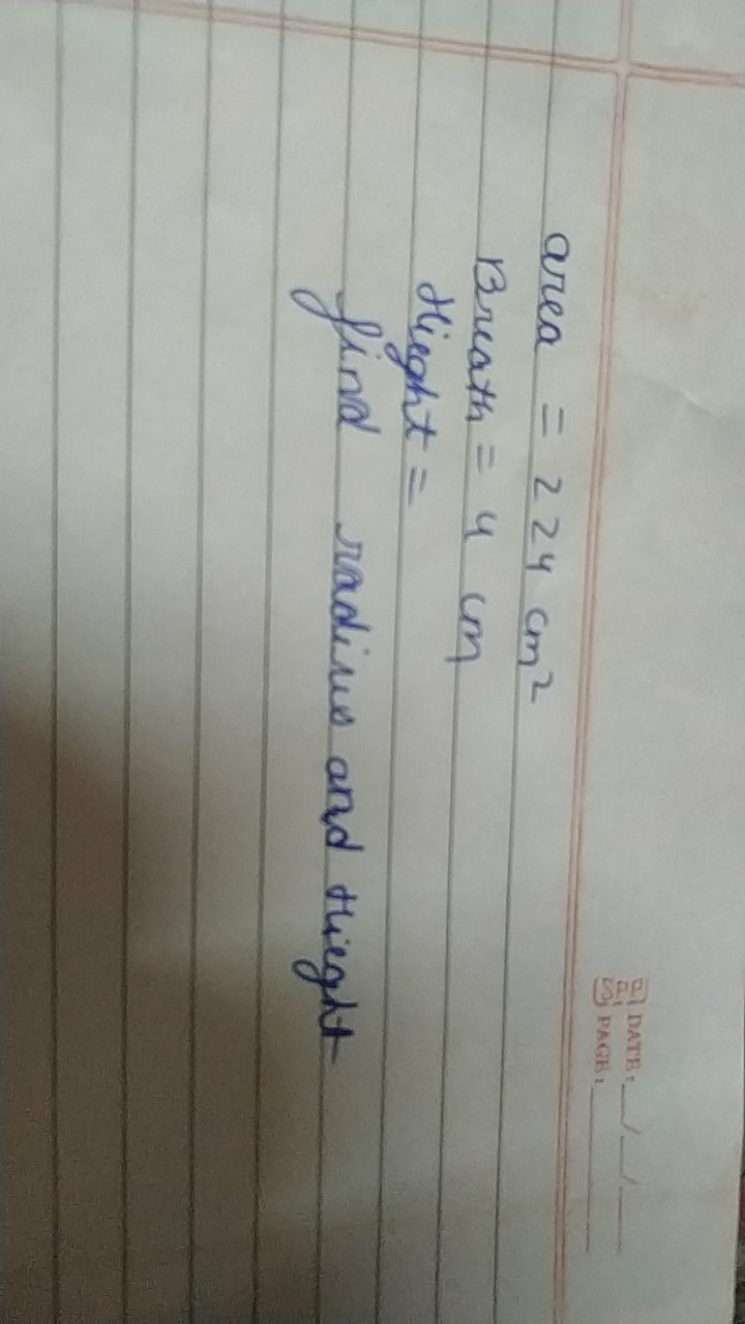 DATE: __/__/__
PAGE:
area = 224 cm²
Breath = 4 cm
Hieght =
find radius and Hieght